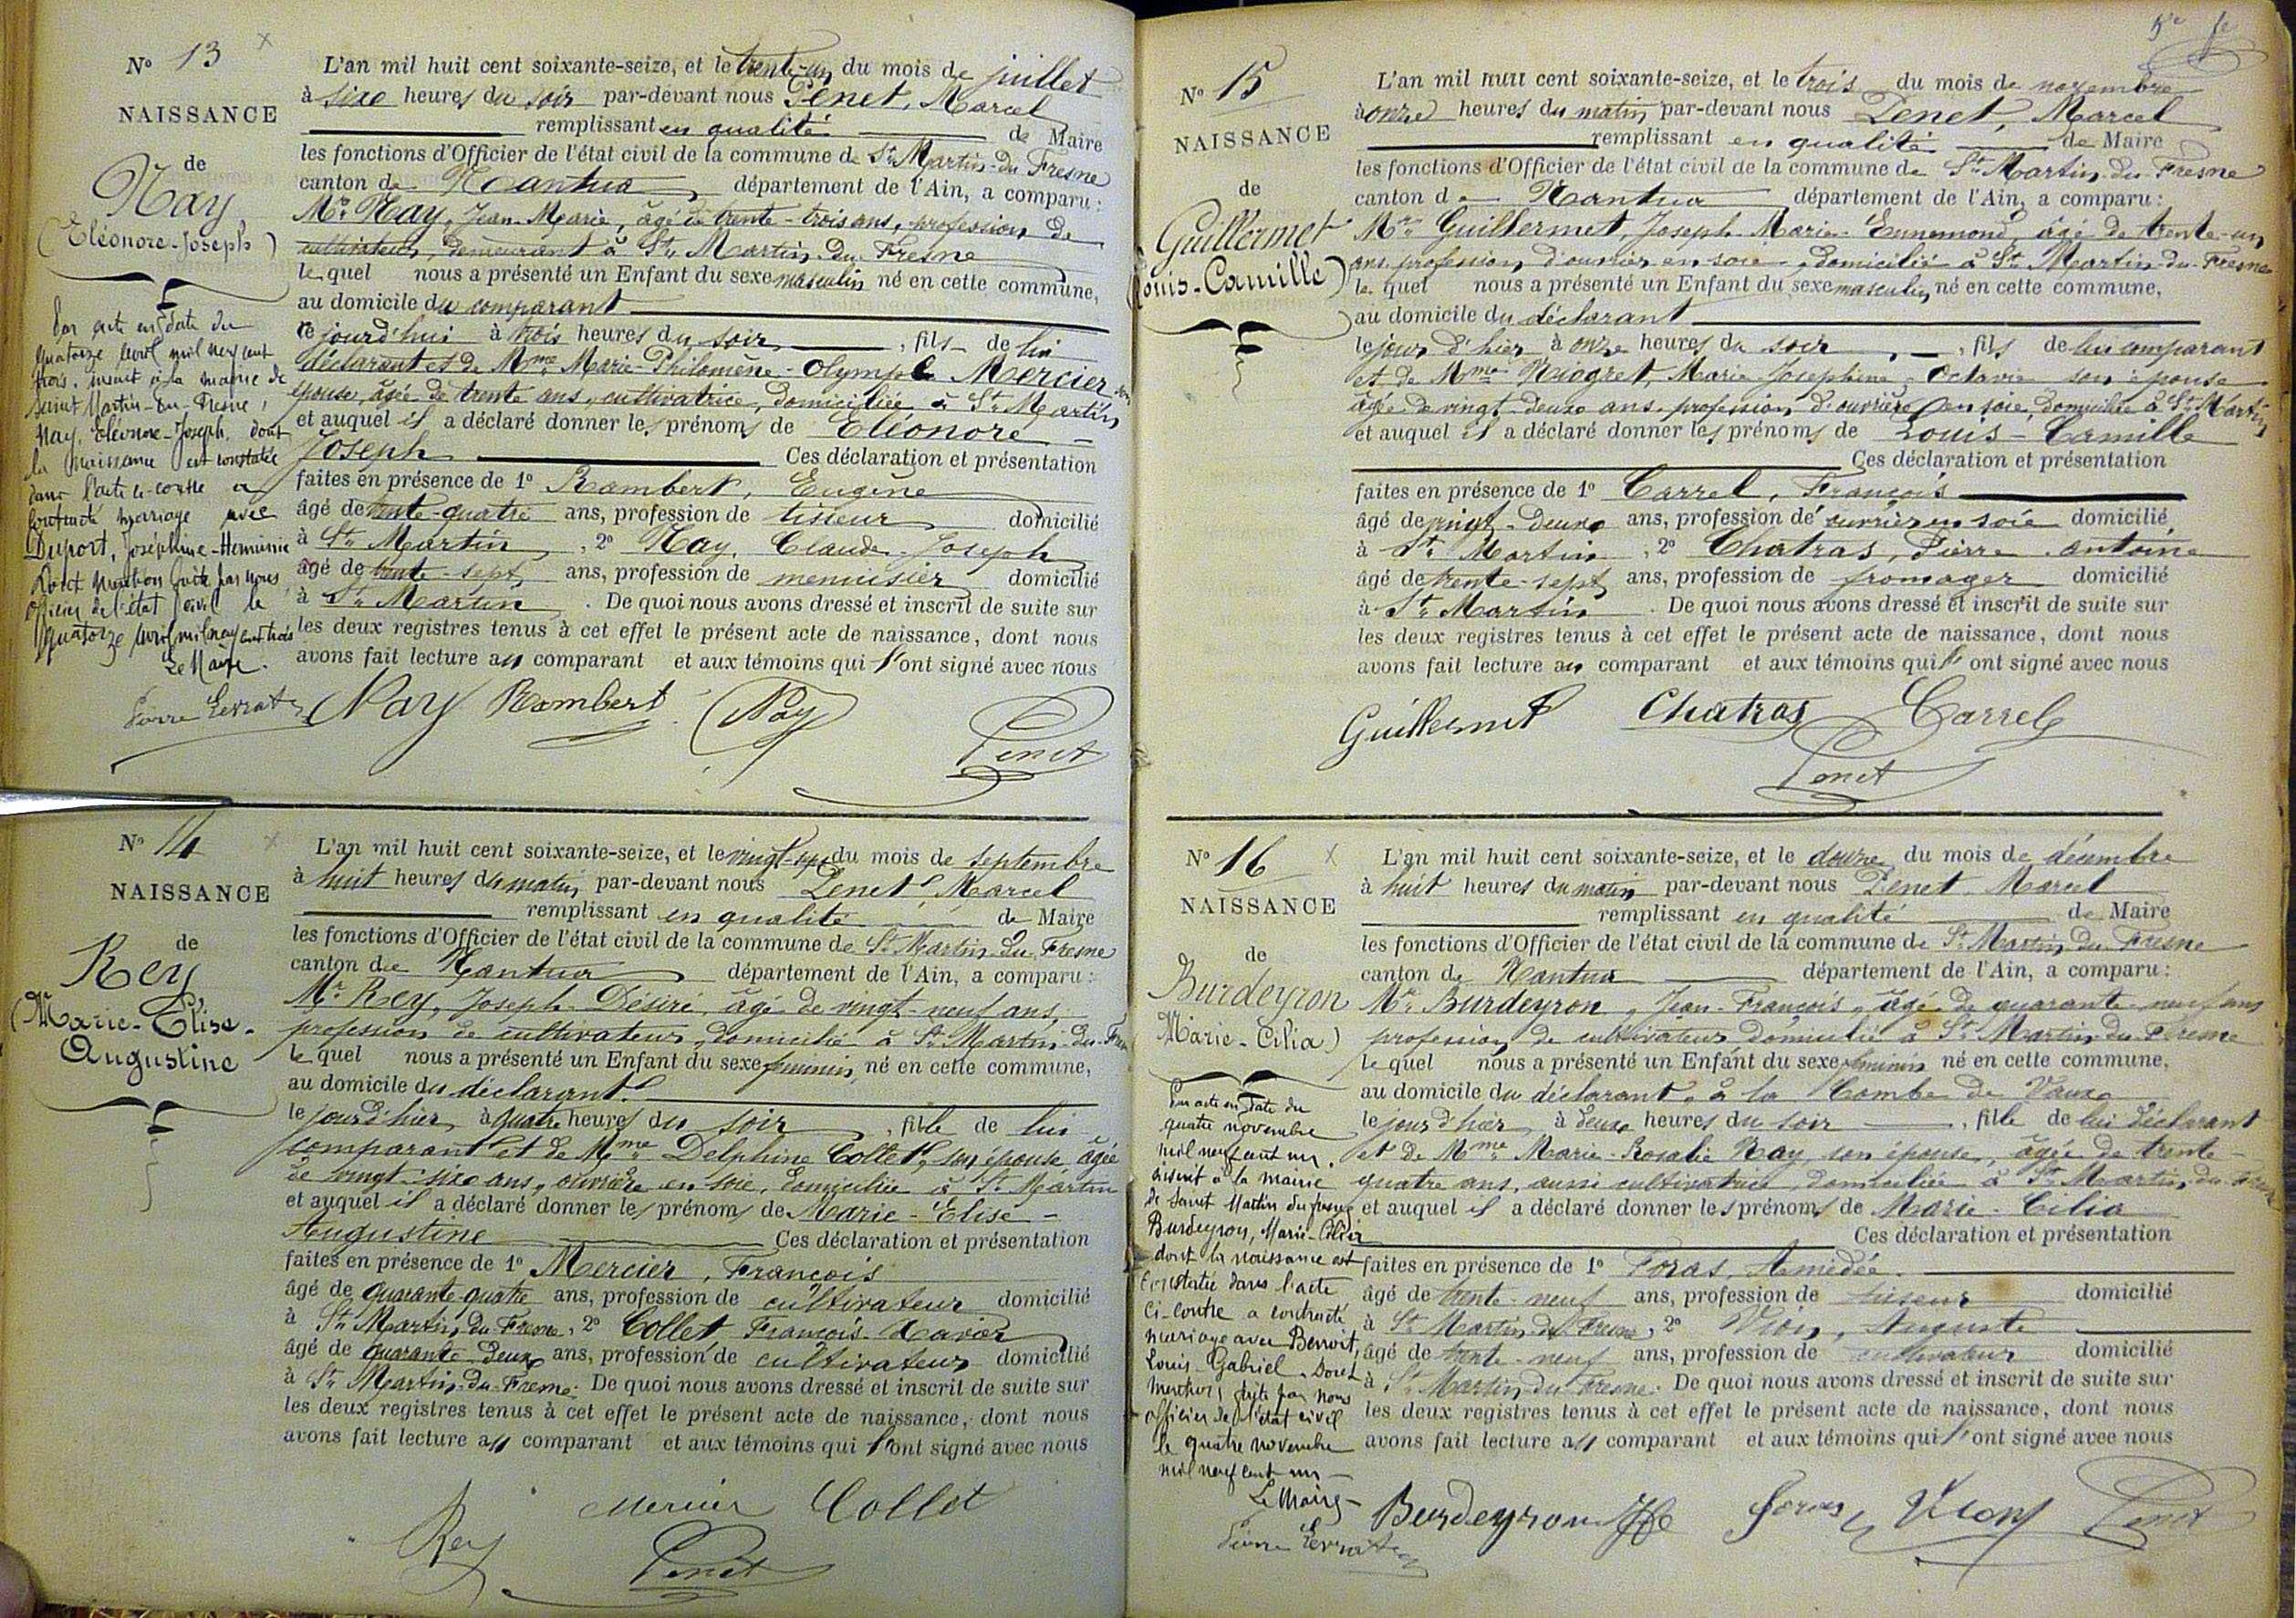 N° 13
NAISSANCE
de
Nay
(Eléonore-Joseph)
Par acte en date du
quatorze avril mil neuf cent
trois, inscrit à la mairie de
Saint Martin-du-Fresne,
Nay, Eléonore-Joseph, dont
la naissance est constatée
dans l'acte ci-contre a
contracté mariage avec
Duport, Joséphine-Herminie
Dont mention faite par nous
officier de l'état civil le
quatorze avril mil neuf cent trois
Le Maire.
L'an mil huit cent soixante-seize, et le trente-un du mois de juillet
à six heures du soir par-devant nous Penet, Marcel
remplissant en qualité de Maire
les fonctions d'Officier de l'état civil de la commune de St Martin-du Fresne
canton de Nantua département de l'Ain, a comparu :
Mr Nay, Jean-Marie, âgé de trente-trois ans, profession de
cultivateur, demeurant à St Martin-du-Fresne
lequel nous a présenté un Enfant du sexe masculin né en cette commune,
au domicile du comparant
ce jourd'hui à trois heures du soir, fils de lui
déclarant et de Mme Marie-Philomène-Olympe Mercier son
épouse, âgée de trente ans, cultivatrice, domiciliée à St Martin
et auquel il a déclaré donner les prénoms de Eléonore-
Joseph Ces déclaration et présentation
faites en présence de 1° Rambert, Eugène
âgé de trente-quatre ans, profession de tisseur domicilié
à St Martin, 2° Nay, Claude-Joseph
âgé de trente-sept ans, profession de menuisier domicilié
à St Martin. De quoi nous avons dressé et inscrit de suite sur
les deux registres tenus à cet effet le présent acte de naissance, dont nous
avons fait lecture au comparant et aux témoins qui l'ont signé avec nous
Pierre Levrat Nay Rambert Nay
Penet
N° 14
NAISSANCE
de
Rey
(Marie-Elise-
Augustine
L'an mil huit cent soixante-seize, et le vingt-sept du mois de septembre
à huit heures du matin par-devant nous Penet, Marcel
remplissant en qualité de Maire
les fonctions d'Officier de l'état civil de la commune de St Martin-du-Fresne
canton de Nantua département de l'Ain, a comparu :
Mr Rey, Joseph-Désiré, âgé de vingt-neuf ans,
profession de cultivateur, domicilié à St Martin-du-Fresne
lequel nous a présenté un Enfant du sexe féminin né en cette commune,
au domicile du déclarant
le jour d'hier à quatre heures du soir, fille de lui
comparant et de Mme Delphine Collet, son épouse, âgée
de vingt-six ans, ouvrière en soie, domiciliée à St Martin
et auquel il a déclaré donner les prénoms de Marie-Elise-
Augustine Ces déclaration et présentation
faites en présence de 1° Mercier, François
âgé de quarante-quatre ans, profession de cultivateur domicilié
à St Martin du Fresne, 2° Collet François-Xavier
âgé de quarante-deux ans, profession de cultivateur domicilié
à St Martin-du-Fresne. De quoi nous avons dressé et inscrit de suite sur
les deux registres tenus à cet effet le présent acte de naissance, dont nous
avons fait lecture au comparant et aux témoins qui l'ont signé avec nous
Mercier Collet
Rey Penet
N° 15
NAISSANCE
de
Guillermet
(Louis-Camille)
L'an mil huit cent soixante-seize, et le trois du mois de novembre
à onze heures du matin par-devant nous Penet, Marcel
remplissant en qualité de Maire
les fonctions d'Officier de l'état civil de la commune de St Martin-du-Fresne
canton de Nantua département de l'Ain, a comparu :
Mr Guillermet, Joseph-Marie-Ennemond, âgé de trente-un
ans, profession d'ouvrier en soie, domicilié à St Martin-du-Fresne
lequel nous a présenté un Enfant du sexe masculin né en cette commune,
au domicile du déclarant
le jour d'hier à onze heures du soir, fils de lui comparant
et de Mme Niogret, Marie-Josephine-Octavie son épouse
âgée de vingt-deux ans, profession d'ouvrière en soie, domiciliée à St Martin
et auquel il a déclaré donner les prénoms de Louis-Camille
Ces déclaration et présentation
faites en présence de 1° Carrel, François
âgé de vingt-deux ans, profession de ouvrier en soie domicilié
à St Martin, 2° Chatras, Pierre Antoine
âgé de trente-sept ans, profession de fromager domicilié
à St Martin. De quoi nous avons dressé et inscrit de suite sur
les deux registres tenus à cet effet le présent acte de naissance, dont nous
avons fait lecture au comparant et aux témoins qui l'ont signé avec nous
Guillermet Chatras Carrel
Penet
N° 16
NAISSANCE
de
Burdeyron
Marie-Cilia)
Par acte en date du
quatre novembre
mil neuf cent un,
inscrit à la mairie
de Saint Martin du fresne
Burdeyron, Marie-Cilia
dont la naissance est
constatée dans l'acte
ci-contre a contracté
mariage avec Benoit,
Louis-Gabriel. Dont
mention faite par nous
officier de l'état civil
le quatre novembre
mil neuf cent un
Le Maire
Pierre Levrat
L'an mil huit cent soixante-seize, et le douze du mois de décembre
à huit heures du matin par-devant nous Penet Marcel
remplissant en qualité de Maire
les fonctions d'Officier de l'état civil de la commune de St Martin du Fresne
canton de Nantua département de l'Ain, a comparu :
Mr Burdeyron, Jean-François, âgé de quarante-neuf ans
profession de cultivateur domicilié à St Martin du Fresne
lequel nous a présenté un Enfant du sexe féminin né en cette commune,
au domicile du déclarant, à la Combe de Vaux
le jour d'hier à deux heures du soir, fille de lui déclarant
et de Mme Marie-Rosalie Nay, son épouse, âgée de trente-
quatre ans, aussi cultivatrice, domiciliée à St Martin-du-Fresne
et auquel il a déclaré donner les prénoms de Marie-Cilia
Ces déclaration et présentation
faites en présence de 1° Foras, Amédée
âgé de trente-neuf ans, profession de tisseur domicilié
à St Martin du Fresne, 2° Vion, Auguste
âgé de trente-neuf ans, profession de cultivateur domicilié
à St Martin du Fresne. De quoi nous avons dressé et inscrit de suite sur
les deux registres tenus à cet effet le présent acte de naissance, dont nous
avons fait lecture au comparant et aux témoins qui l'ont signé avec nous
Burdeyron Foras Vion Penet